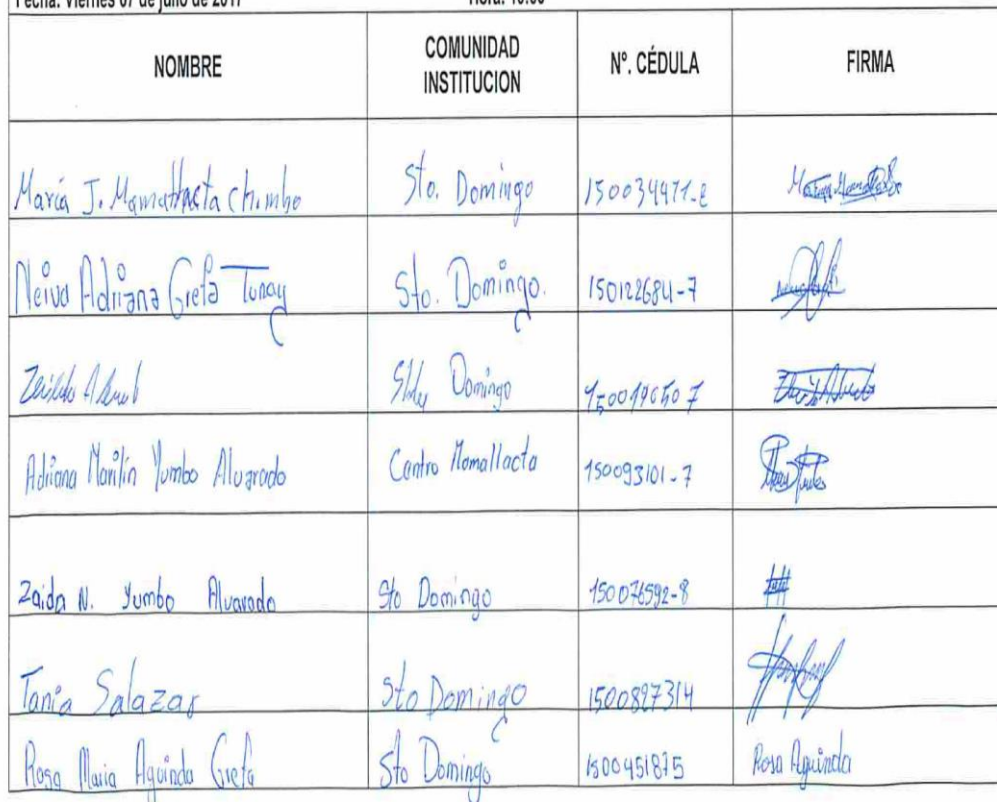 Fecha: Viernes 07 de julio de 2017 Hora: 10:00
NOMBRE COMUNIDAD INSTITUCION Nº. CÉDULA FIRMA
María J. Mamallacta Chimbo Sto. Domingo
Neiva Adriana Grefa Tunay Sto. Domingo. 150122684-7
Domingo
Adriana Marilin Yumbo Alvarado Centro Mamallacta 150093101-7
Zaida N. Yumbo Alvarado Sto Domingo 150076592-8
Tania Salazar Sto Domingo 1500827314
Rosa Maria Aguinda Grefa Sto Domingo 1500451875 Rosa Aguinda